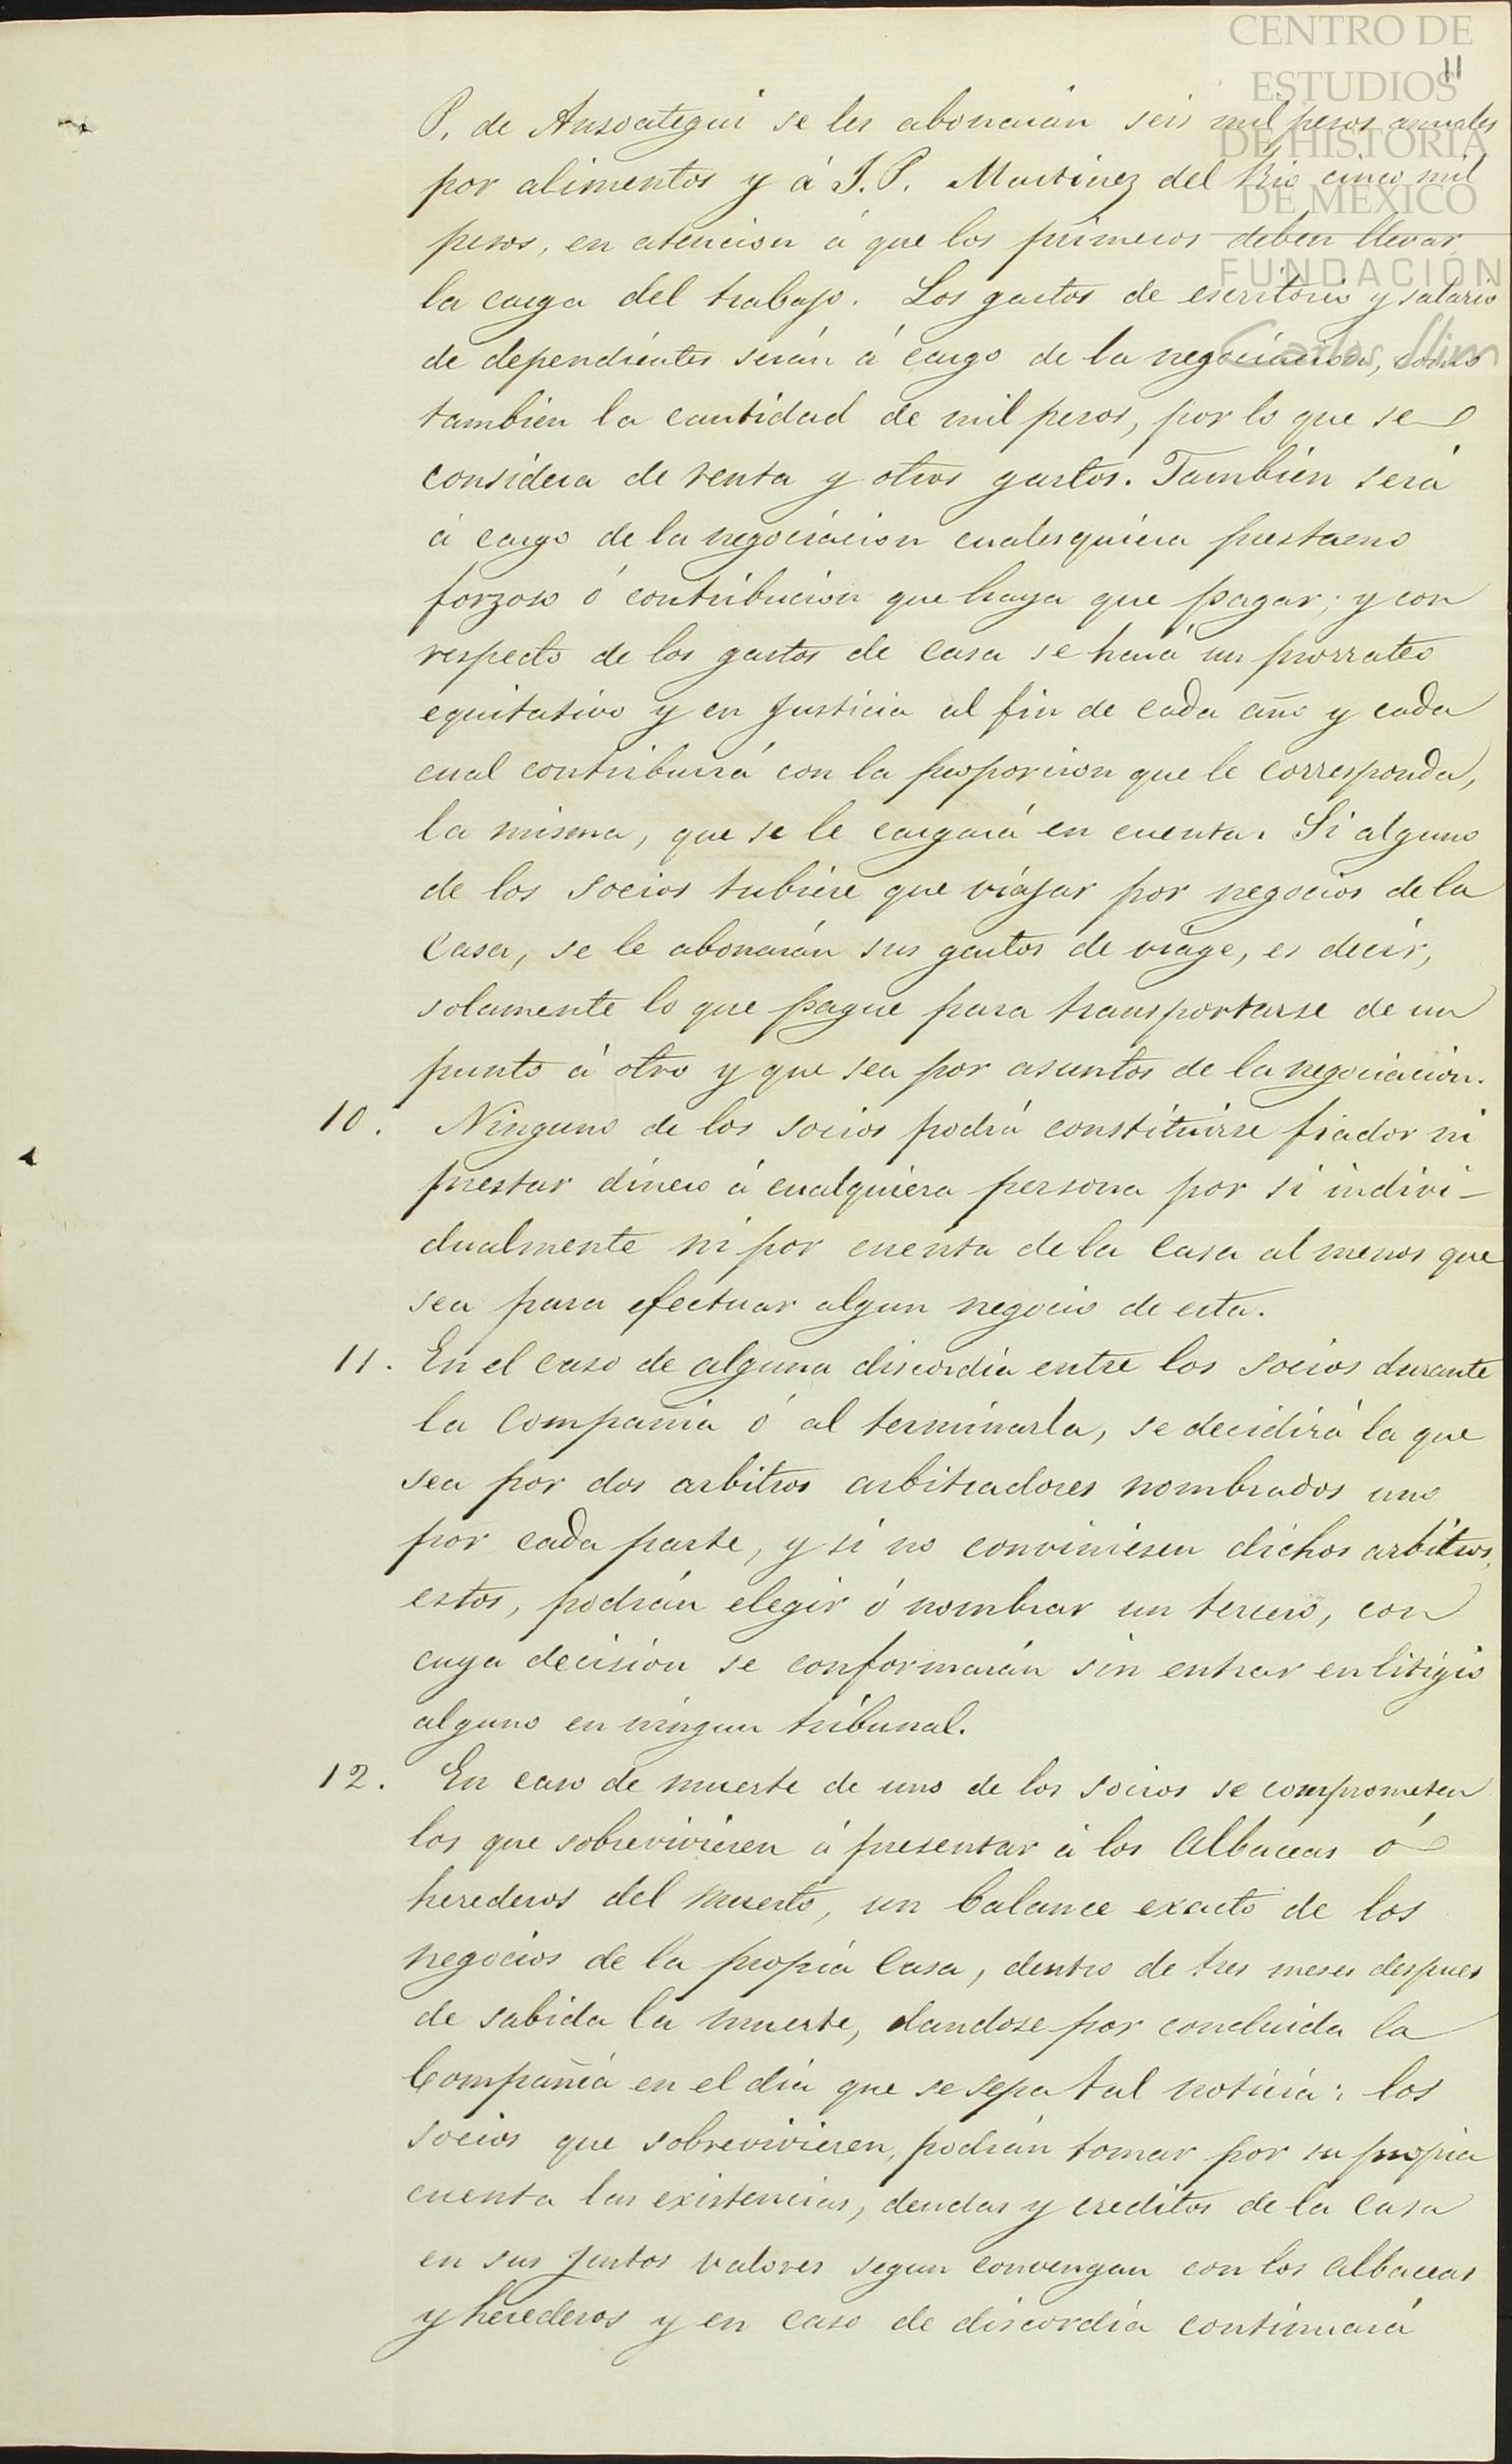 CENTRO DE
ESTUDIOS
DE HISTORIA
DE MEXICO
FUNDACIÓN
Carlos Slim
11
P. de Ansoategui se les abonarán seis mil pesos anuales
por alimentos y á J. P. Martinez del Rio cinco mil
pesos, en atencion á que los primeros deben llevar
la carga del trabajo. Los gastos de escritorio y salario
de dependientes serán á cargo de la negociacion, como
tambien la cantidad de mil pesos, por lo que se
considera de renta y otros gastos. Tambien será
á cargo de la negociacion cualesquiera prestamo
forzoso ó contribucion que haya que pagar; y con
respecto de los gastos de casa se hará un prorrateo
equitativo y en justicia al fin de cada año y cada
cual contribuirá con la proporcion que le corresponda,
la misma, que se le cargará en cuenta. Si alguno
de los socios tubiere que viajar por negocios de la
Casa, se le abonarán sus gastos de viage, es decir,
solamente lo que pague para transportarse de un
punto á otro y que sea por asuntos de la negociacion.
10. Ninguno de los socios podrá constituirse fiador ni
prestar dinero á cualquiera persona por si indivi-
dualmente ni por cuenta de la Casa al menos que
sea para efectuar algun negocio de esta.
11. En el caso de alguna discordia entre los socios durante
la Compañia ó al terminarla, se decidirá la que
sea por dos arbitros arbitradores nombrados uno
por cada parte, y si no conviniesen dichos arbitros,
estos, podrán elegir ó nombrar un tercero, con
cuya decision se conformarán sin entrar en litigio
alguno en ningun tribunal.
12. En caso de muerte de uno de los socios se comprometen
los que sobrevivieren á presentar á los Albaceas ó
herederos del muerto, un balance exacto de los
negocios de la propia Casa, dentro de tres meses despues
de sabida la muerte, dandose por concluida la
Compañia en el dia que se sepa tal noticia: los
socios que sobrevivieren, podrán tomar por su propia
cuenta las existencias, deudas y creditos de la Casa
en sus justos valores segun convengan con los albaceas
y herederos y en caso de discordia continuará